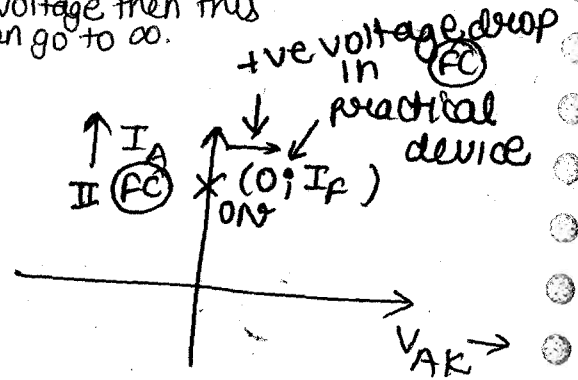 voltage then this
n go to ∞.
+ve voltage drop
in (FC)
practical
device
↑ I_A
II (FC) × (0; I_F)
ON
V_AK →